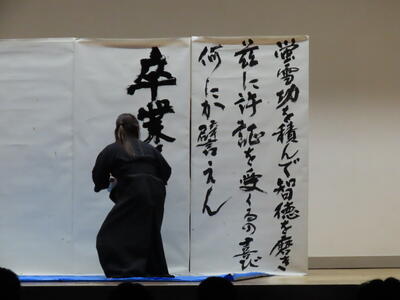 蛍雪功を積んで智徳を磨き
茲に許証を受くるの喜び
何にか譬えん
卒業